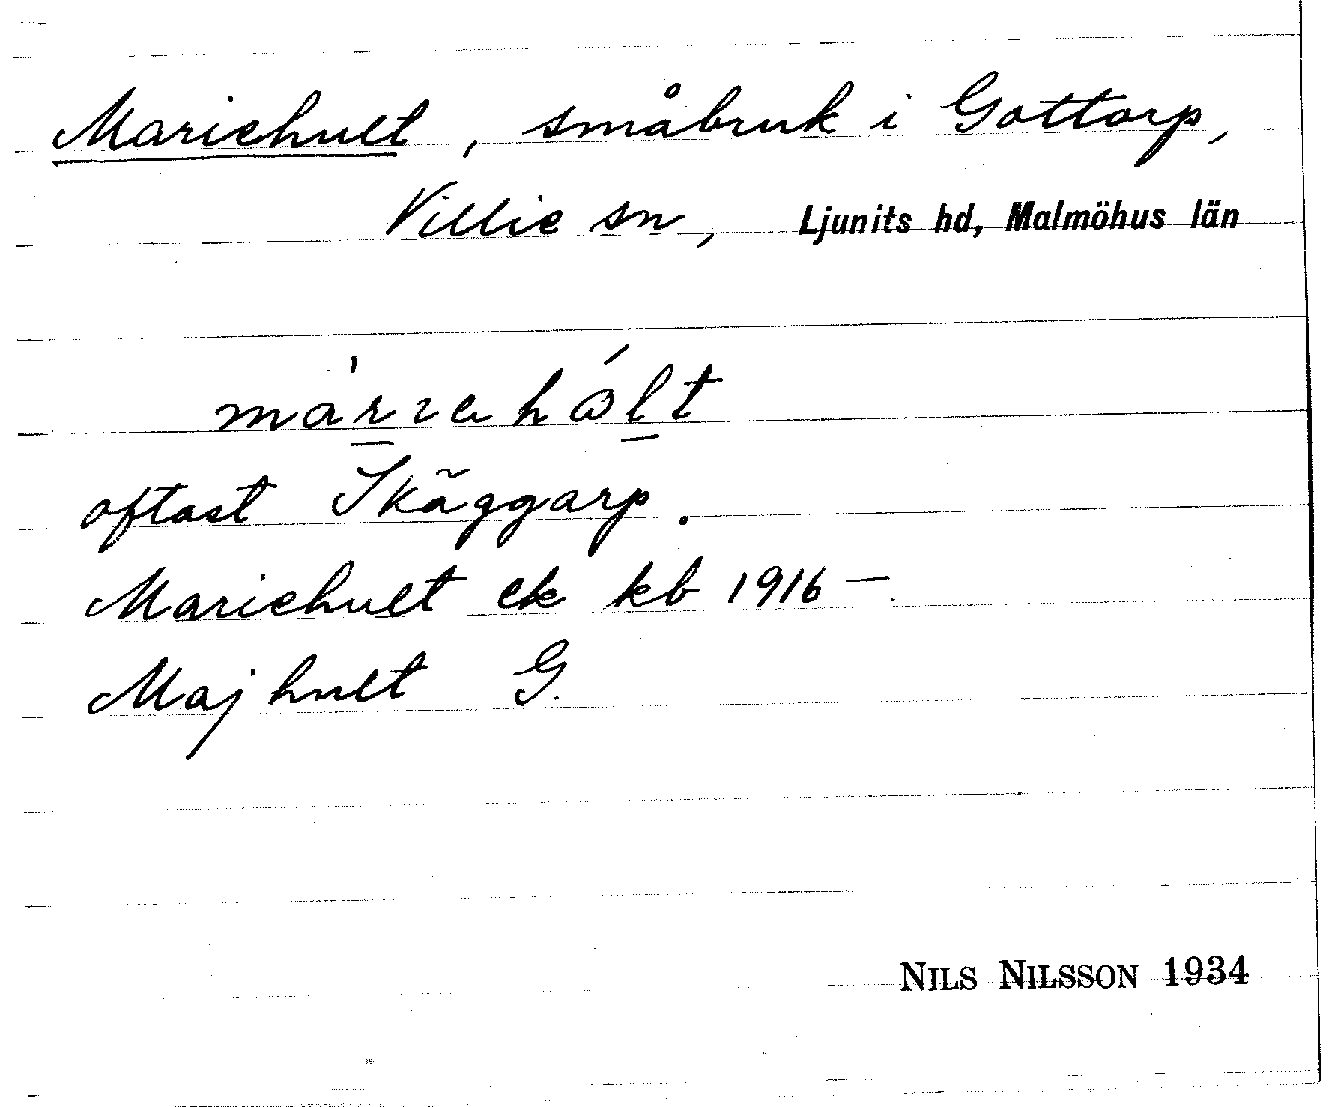 Mariehult, småbruk i Gottorp,
Villie sn, Ljunits hd, Malmöhus län
oftast Skäggarp.
Mariehult ek kb 1916 –
Majhult G.
NILS NILSSON 1934